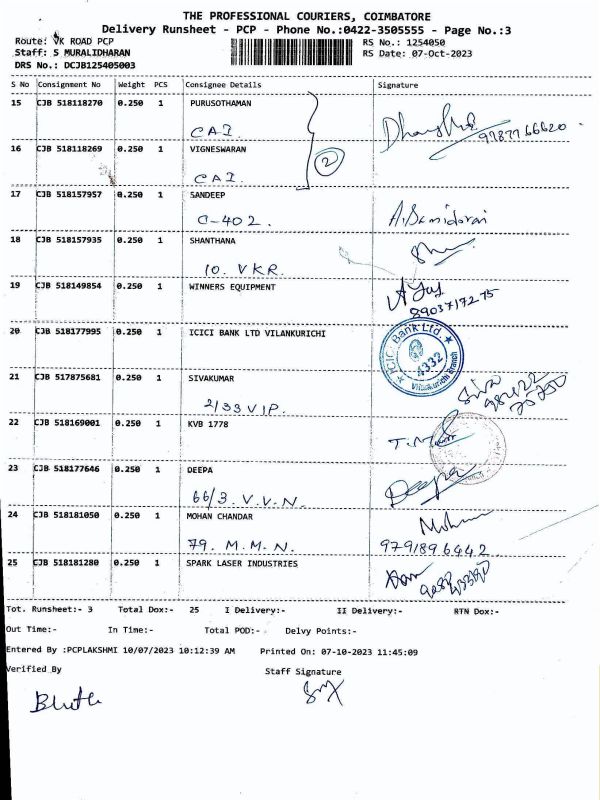 THE PROFESSIONAL COURIERS, COIMBATORE
Delivery Runsheet - PCP - Phone No.:0422-3505555 - Page No.:3
Route: VK ROAD PCP RS No.: 1254050
Staff: S MURALIDHARAN RS Date: 07-Oct-2023
DRS No.: DCJB125405003
S No Consignment No Weight PCS Consignee Details Signature
15 CJB 518118270 0.250 1 PURUSOTHAMAN
CAI. 9787766620
16 CJB 518118269 0.250 1 VIGNESWARAN 2
CAI.
17 CJB 518157957 0.250 1 SANDEEP
C-402. A.Samidorai
18 CJB 518157935 0.250 1 SHANTHANA
10. VKR.
19 CJB 518149854 0.250 1 WINNERS EQUIPMENT
8903717275
20 CJB 518177995 0.250 1 ICICI BANK LTD VILANKURICHI
ICICI Bank Ltd. 4332 Vilankurichi Branch
21 CJB 517875681 0.250 1 SIVAKUMAR Siva
2/33 VIP.
22 CJB 518169001 0.250 1 KVB 1778
23 CJB 518177646 0.250 1 DEEPA Deepa
66/3. V.V.N.
24 CJB 518181050 0.250 1 MOHAN CHANDAR Mohan
79. M.M.N. 9791896442
25 CJB 518181280 0.250 1 SPARK LASER INDUSTRIES
Tot. Runsheet:- 3 Total Dox:- 25 I Delivery:- II Delivery:- RTN Dox:-
Out Time:- In Time:- Total POD:- Delvy Points:-
Entered By :PCPLAKSHMI 10/07/2023 10:12:39 AM Printed On: 07-10-2023 11:45:09
Verified By Staff Signature